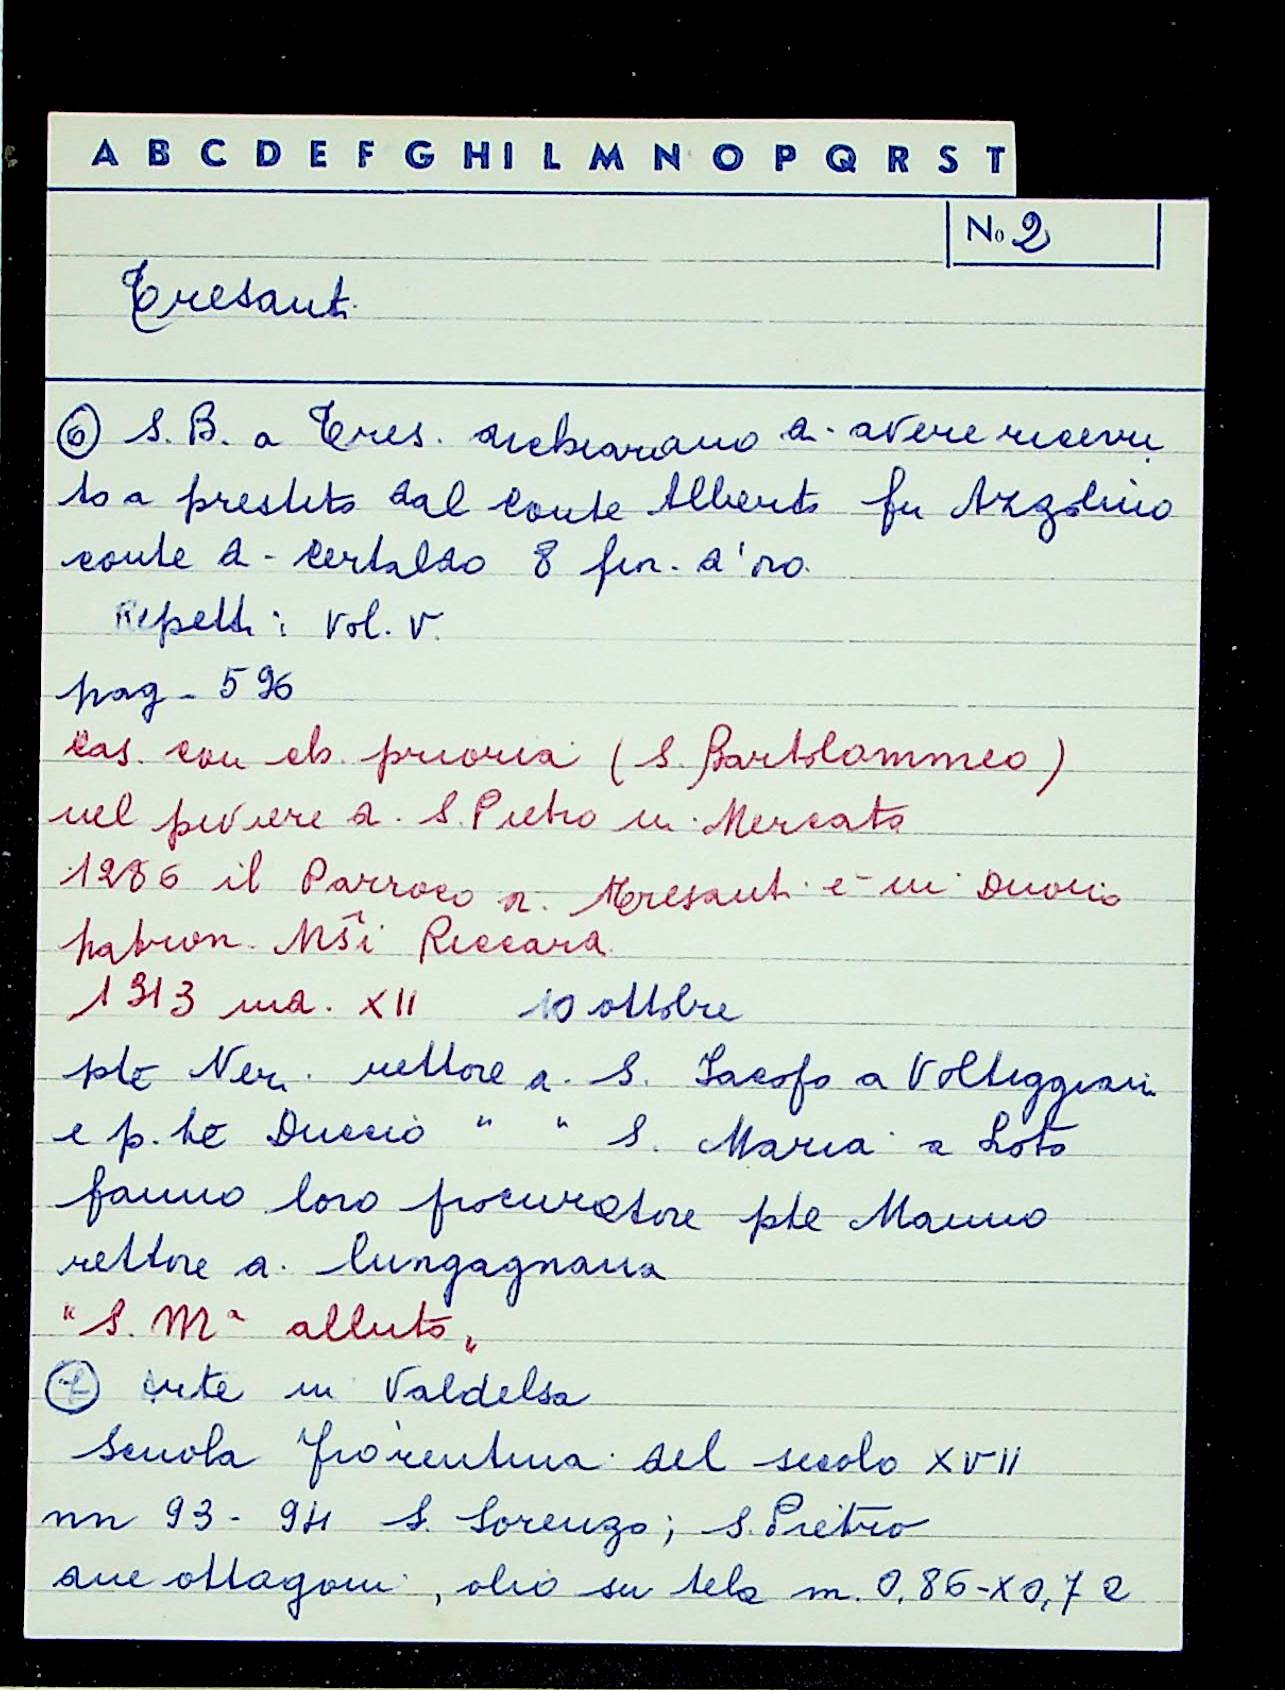 A B C D E F G H I L M N O P Q R S T
No 2
Tresanti
⑥ S. B. a Tres. dichiarano di avere ricevu
to a prestito dal conte Alberto fu Azzolino
conte di Certaldo 8 fior. d'oro.
Repetti: Vol. V.
pag - 596
Cas. con ch. prioria (S. Bartolommeo)
nel piviere di S. Pietro in Mercato
1286 il Parroco di Tresanti e in
patron. Riccardi
1313 ind. XII 10 ottobre
pte Neri rettore di S. Jacopo a Voltiggiari
e p. te Duccio " " S. Maria a Loto
fanno loro procuratore pte Manno
rettore di Lungagnana
"S. Mª alluto"
⑦ Arte in Valdelsa
Scuola fiorentina del secolo XVII
nn 93 - 94 S. Lorenzo; S. Pietro
due ottagoni, olio su tela m. 0,86 - x 0,72